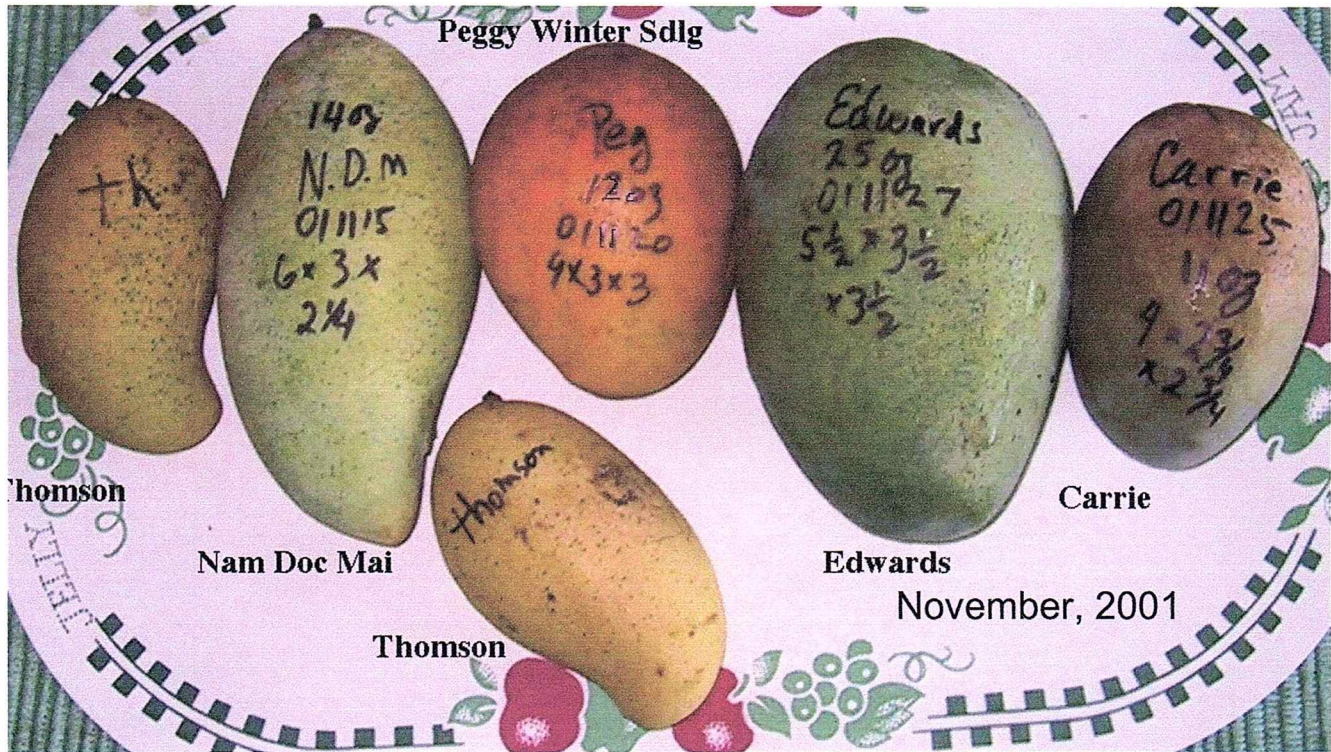 Peggy Winter Sdlg
JAM
th
14oz
N.D.M
011115
6 x 3 x
2 1/4
Peg
12oz
011120
4x3x3
Edwards
25 oz
011127
5 1/2 x 3 1/2
x 3 1/2
Carrie
011125
11 oz
4 x 2 3/4
x 2 3/4
Thomson
thomson
Carrie
Nam Doc Mai
Edwards
November, 2001
JELLY
Thomson